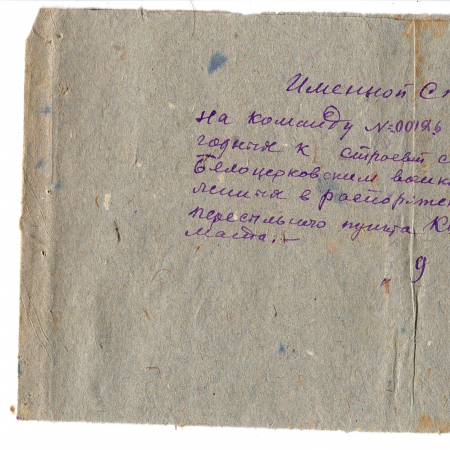 Именной С
на команду № 00126
годных к строевой с
Белоцерковским воинс
ленных в распоряжен
пересыльного пункта К
маша.-
9